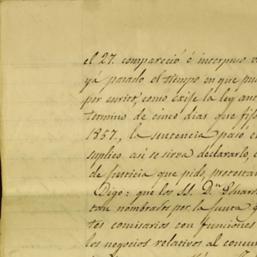 el 27. compareció é interpuso
yá pasado el tiempo en que
por escrito, como exige la ley
termino de cinco dias que
1857., la sentencia pasó
suplico así se sirva declararlo,
de justicia que pido,
Digo: que los SS. Dn
tan nombrados por la Junta
tes comisarios con funciones
los negocios relativos al